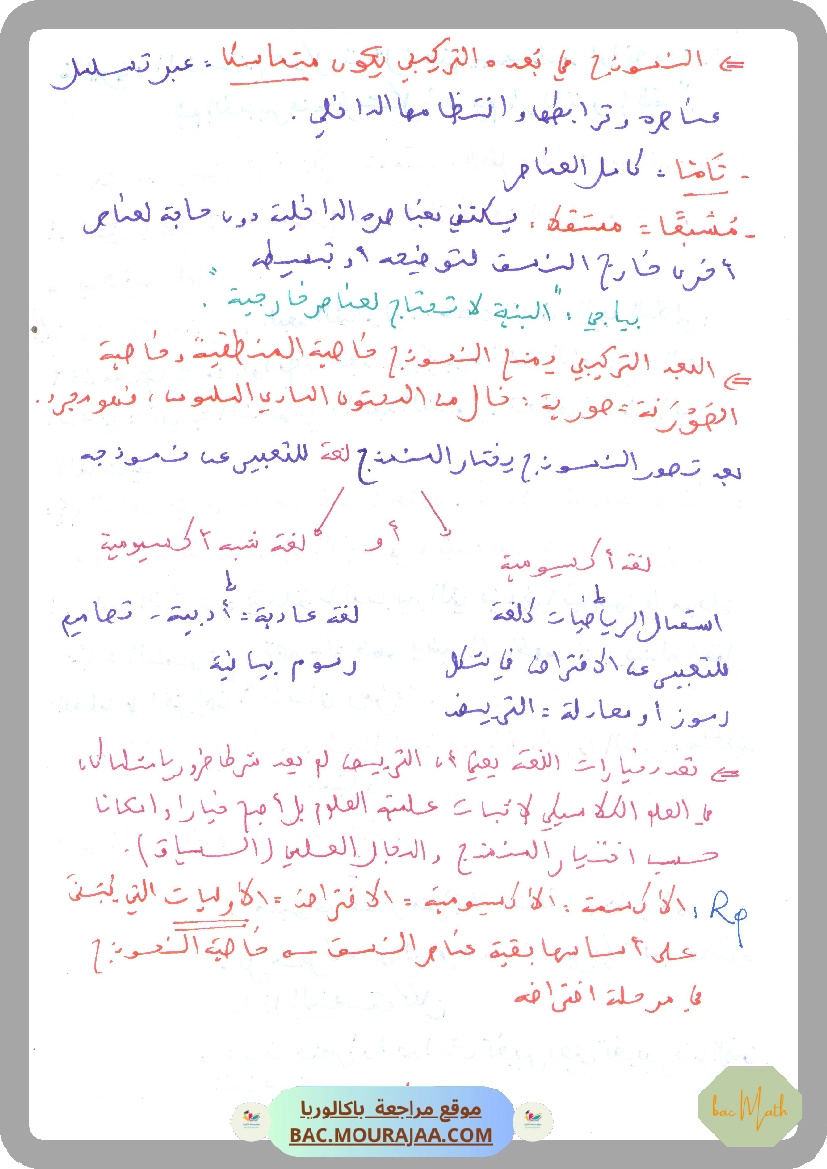 ⇐ النموذج في بُعده التركيبي يكون متماسكا : عبر تسلسل
عناصره وترابطها وانتظامها الداخلي .
- تَامّا : كامل العناصر
- مُشبعًا = مستقلا : يكتفي بعناصره الداخلية دون حاجة لعناصر
أخرى خارج النسق لتوضيحه أو تبسيطه
بياجي : "البنية لا تحتاج لعناصر خارجية" .
⇐ البعد التركيبي يمنح النموذج خاصية المنطقية وخاصية
الصَوْرَنة = صورية : خال من المحتوى المادي الملموس ، فهو مجرد .
بعد تصور النموذج يختار المنمذج لغة للتعبير عن نموذجه
لغة أكسيومية أو لغة شبه أكسيومية
استعمال الرياضيات كلغة
للتعبير عن الافتراض في شكل
رموز أو معادلة = الترييض
لغة عادية = أدبية - تصاميم
رسوم بيانية
⇐ تعدد خيارات اللغة يعني أن الترييض لم يعد شرطا ضروريا مثلما كان
في العلم الكلاسيكي لإثبات علمية العلوم بل أصبح خيارا وإمكانا
حسب اختيار المنمذج والمجال العلمي (السياق) .
Rq : الأكسمة : الأكسيومية = الافتراضية = الأوليات التي يُبنى
على أساسها بقية عناصر النسق خاصية النموذج
في مرحلة افتراضه
موقع مراجعة باكالوريا
BAC.MOURAJAA.COM
bac Math